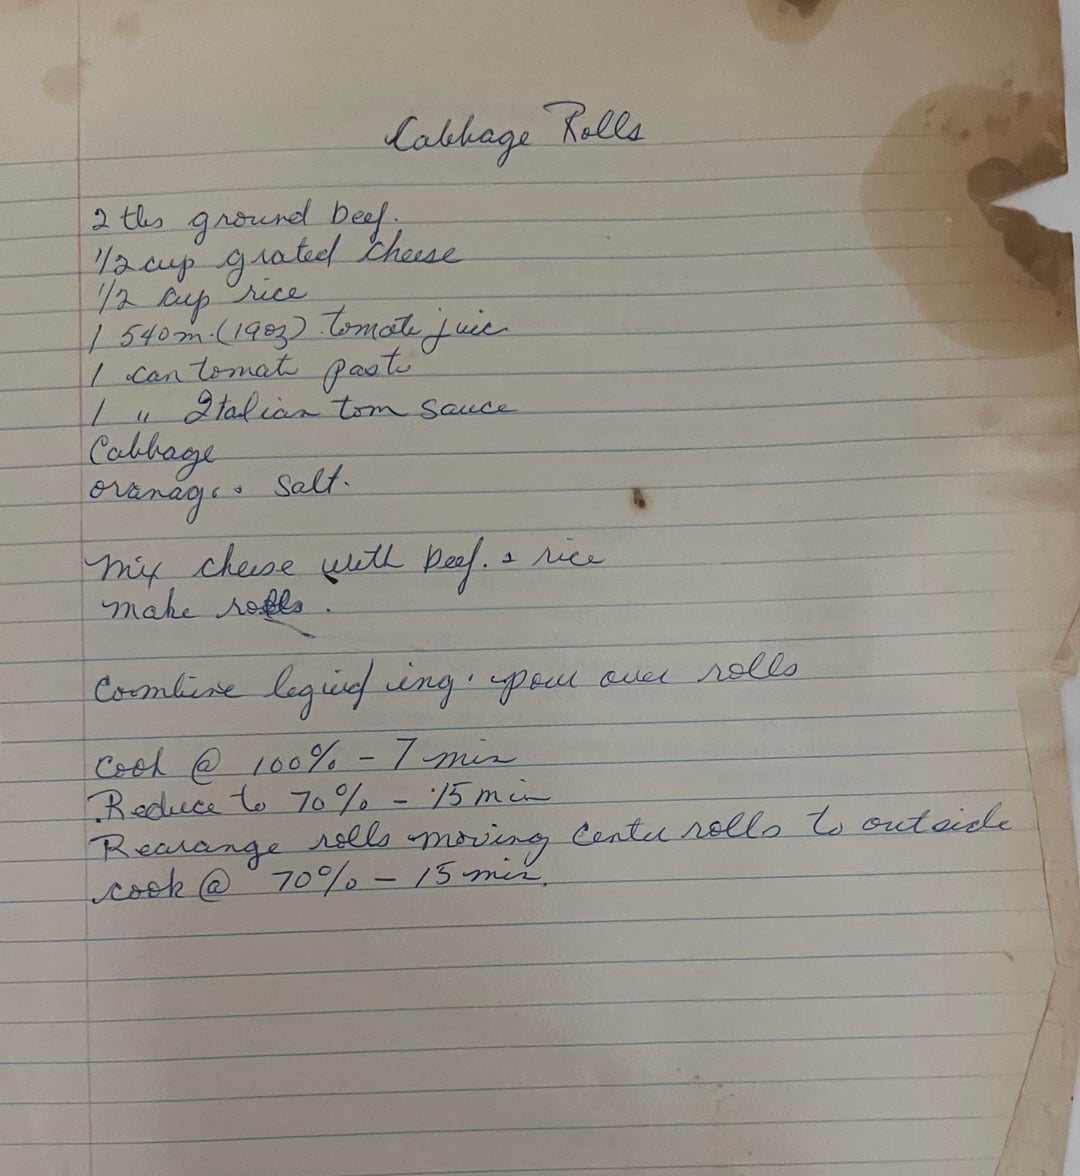 Cabbage Rolls
2 lbs ground beef.
1/2 cup grated cheese
1/2 cup rice
1 540 m. (19oz) tomato juic
1 can tomato paste
1 " Italian tom sauce
Cabbage
salt.
Mix cheese with beef. & rice
make rolls.
Combine ing. pour over rolls
Cook @ 100% - 7 min
Reduce to 70% - 15 min
Rearange rolls moving center rolls to outside
cook @ 70% - 15 min.